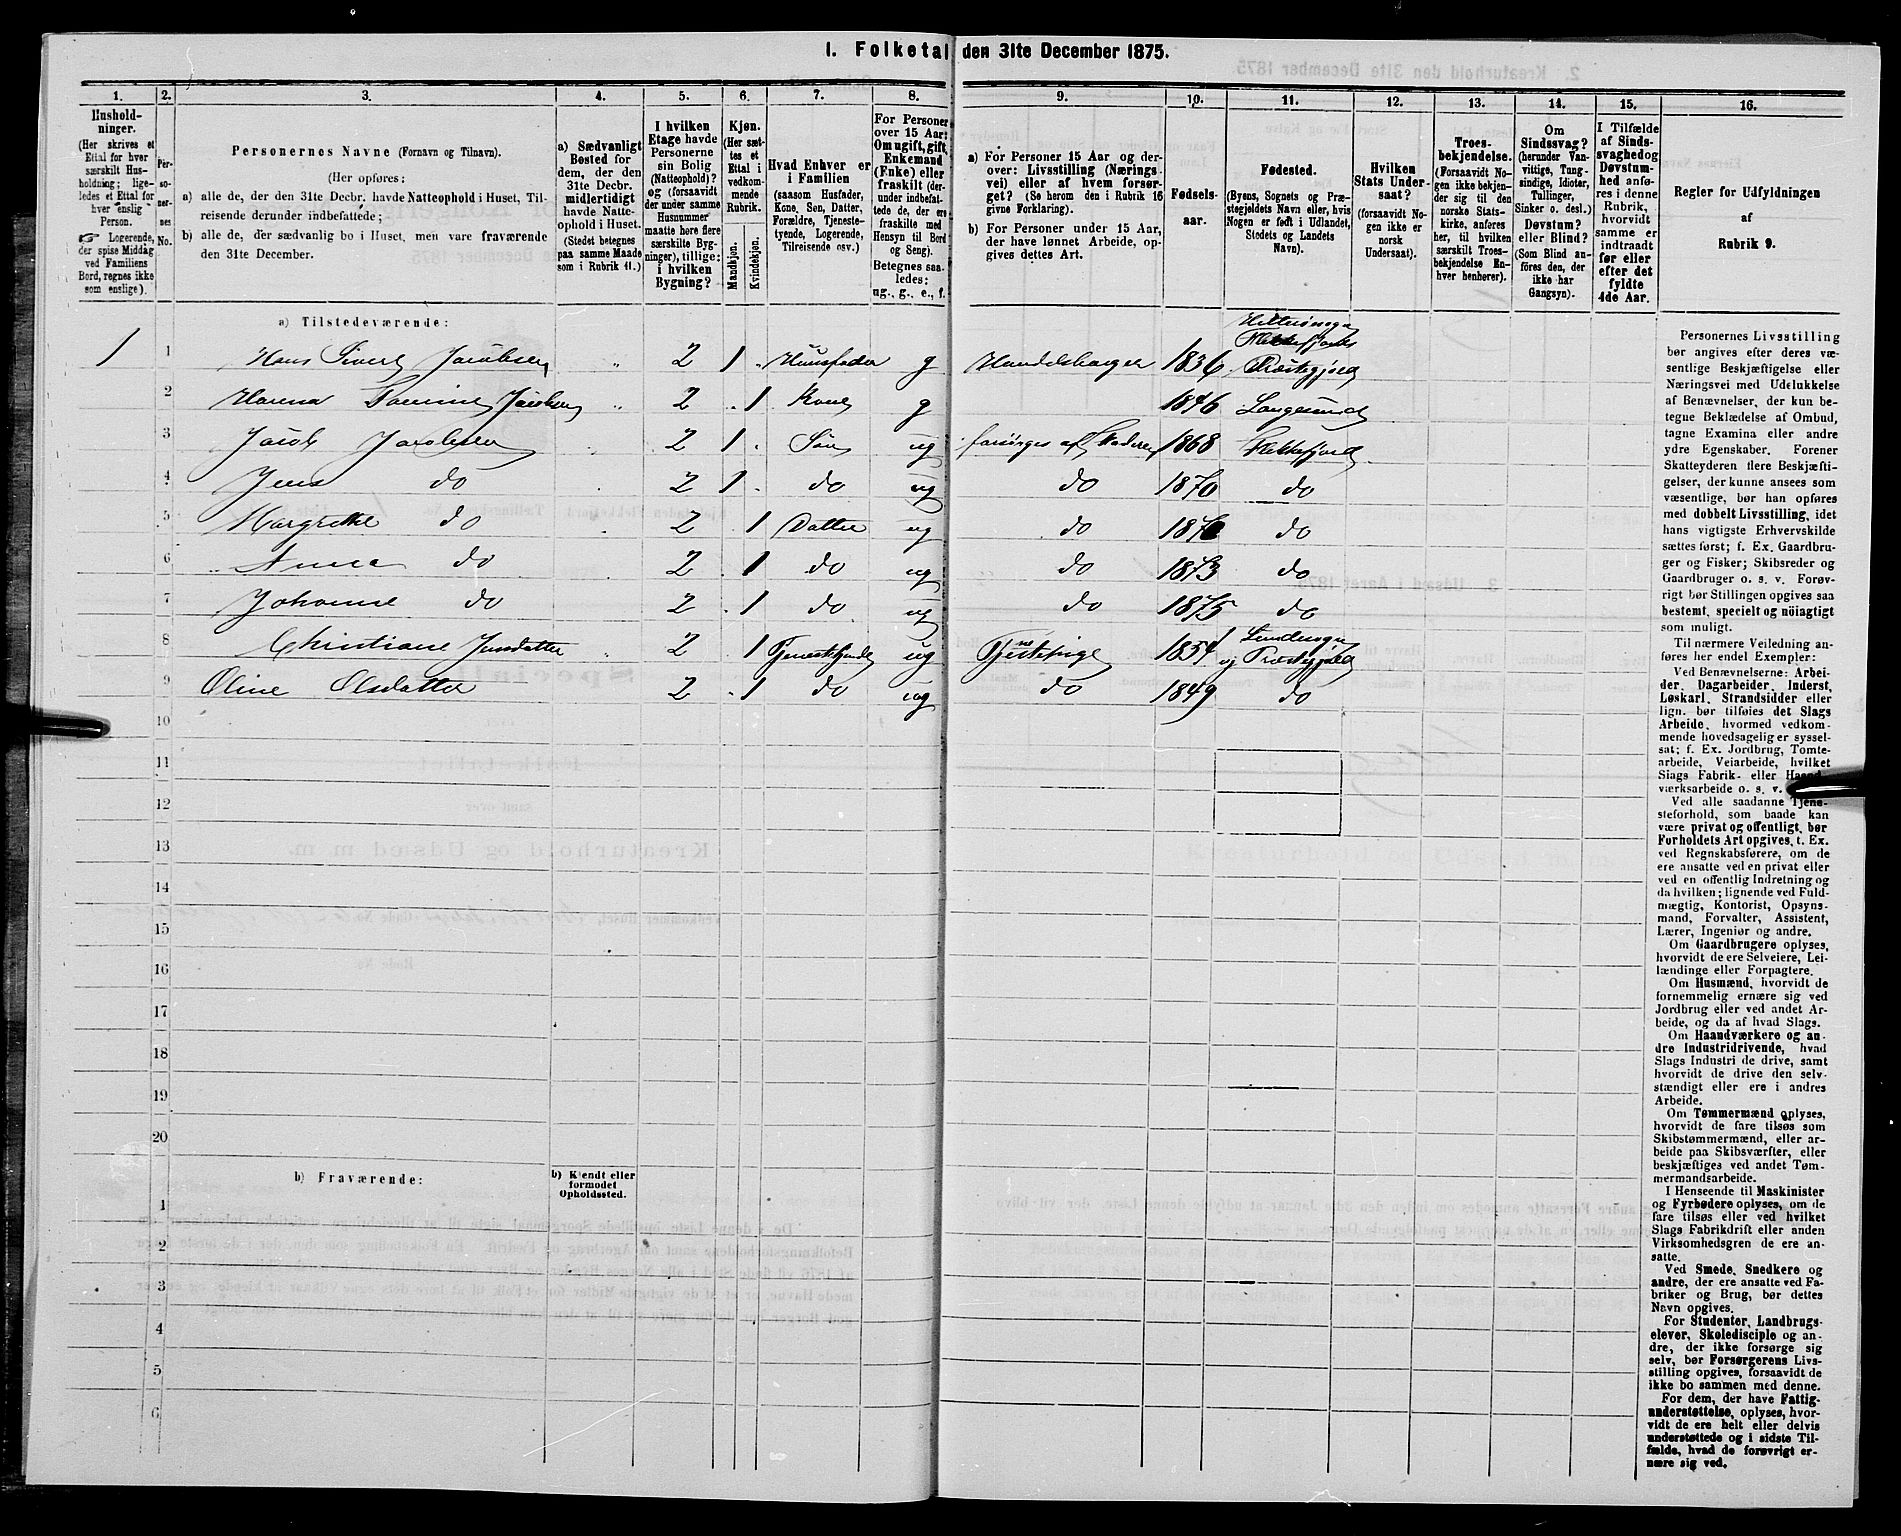 1. Folketal den 31te December 1875.
1. 2. 3. 4. 5. 6. 7. 8. 9. 10. 11. 12. 13. 14. 15. 16.
Husholdninger.
(Her skrives et
Ettal for hver
særskilt Husholdning;
ligeledes et Ettal for
hver enslig
Person.
☞ Logerende,
der spise Middag
ved Familiens
Bord, regnes ikke
som enslige).
Personernes No.
Personernes Navne (Fornavn og Tilnavn).
(Her opføres:
a) alle de, der den 31te Decbr. havde Natteophold i Huset, Tilreisende derunder indbefattede;
b) alle de, der sædvanlig bo i Huset, men vare fraværende
den 31te December.
a) Sædvanligt
Bosted for
dem, der den
31te Decbr.
midlertidigt
havde Natteophold i Huset.
(Stedet betegnes
paa samme Maade
som i Rubrik 11.)
I hvilken
Etage havde
Personerne
sin Bolig
(Natteophold)?
og (forsaavidt
der under samme
Husnummer
maatte høre flere
særskilte Bygninger), tillige:
i hvilken
Bygning?
Kjøn.
(Her sættes et
Ettal i
vedkommende
Rubrik.
Mandkjøn.
Kvindekjøn.
Hvad Enhver er
i Familien
(saasom Husfader,
Kone, Søn, Datter,
Forældre, Tjenestetyende, Logerende,
Tilreisende osv.)
For Personer
over 15 Aar:
Om ugift, gift,
Enkemand
(Enke) eller
fraskilt (derunder indbefattede de, der ere
fraskilte med
Hensyn til Bord
og Seng).
Betegnes saaledes:
ug., g., e., f.
a) For Personer 15 Aar og derover: Livsstilling (Næringsvei) eller af hvem forsørget? (Se herom den i Rubrik 16
givne Forklaring).
b) For Personer under 15 Aar,
der have lønnet Arbeide, opgives dettes Art.
Fødselsaar.
Fødested.
(Byens, Sognets og Præstegjeldets Navn eller, hvis
Nogen er født i Udlandet,
Stedets og Landets
Navn).
Hvilken
Stats Undersaat?
(forsaavidt Nogen ikke er
norsk
Undersaat).
Troesbekjendelse.
(Forsaavidt Nogen ikke bekjender sig til den
norske Statskirke, anføres
her, til hvilken
særskilt Troesbekjendelse Enhver henhører).
Om
Sindssvag?
(herunder Vanvittige, Tungsindige, Idioter,
Tullinger,
Sinker o. desl.)
Døvstum?
eller Blind?
(Som Blind anføres den, der
ikke har
Gangsyn).
I Tilfælde
af Sindssvaghed og
Døvstumhed anføres i denne
Rubrik,
hvorvidt
samme er
indtraadt
før eller
efter det
fyldte
4de Aar.
Regler for Udfyldningen
af
Rubrik 9.
a) Tilstedeværende:
1 1 Hans Sivert Jacobsen " 2 1 " Huusfader g Handelsborger 1836 Hitterøsogn Flekkefjords Præstegjeld
2 Jacobsen " 2 " 1 Kone g 1846 Langesund
3 Jacob Jacobsen 2 1 " Søn ug forsørges af Faderen 1868 Flekkefjord
4 Jens do 2 1 " do ug do 1870 do
5 Margrethe do " 2 " 1 Datter ug do do
6 Anna do " 2 " 1 do ug do 1873 do
7 Johanne do " 2 " 1 do ug do 1875 do
8 Christiane Jensdatter " 2 " 1 Tjenestetyende ug Tjenestepige 1854 og Præstegjeld
9 Oline Olsdatter 2 " 1 do ug do 1849 do
10
11
12
13
14
15
16
17
18
19
20
b) Fraværende:
b) Kjendt eller
formodet
Opholdssted.
1
2
3
4
5
6
Personernes Livsstilling
bør angives efter deres væsentlige Beskjæftigelse eller
Næringsvei med Udelukkelse
af Benævnelser, der kun betegne Beklædelse af Ombud,
tagne Examina eller andre
ydre Egenskaber. Forener
Skatteyderen flere Beskjæftigelser, der kunne ansees som
væsentlige, bør han opføres
med dobbelt Livsstilling, idet
hans vigtigste Erhvervskilde
sættes først; f. Ex. Gaardbruger og Fisker; Skibsreder og
Gaardbruger o. s. v. Forøvrigt bør Stillingen opgives saa
bestemt, specielt og nöiagtigt
som muligt.
Til nærmere Veiledning anføres her endel Exempler:
Ved Benævnelserne: Arbeider, Dagarbeider, Inderst,
Løskarl, Strandsidder eller
lign. bør tilføies det Slags
Arbeide, hvormed vedkommende hovedsagelig er sysselsat; f. Ex. Jordbrug, Tomtearbeide, Veiarbeide, hvilket
Slags Fabrik- eller Haandværksarbeide o. s. v.
Ved alle saadanne Tjenesteforhold, som baade kan
være privat og offentligt, bør
Forholdets Art opgives, t. Ex.
ved Regnskabsførere, om de
ere ansatte ved en privat eller
ved en offentlig Indretning og
da hvilken; lignende ved Fuldmægtig, Kontorist, Opsynsmand, Forvalter, Assistent,
Lærer, Ingeniør og andre.
Om Gaardbrugere oplyses,
hvorvidt de ere Selveiere, Leilændinge eller Forpagtere.
Om Husmænd, hvorvidt de
fornemmelig ernære sig ved
Jordbrug eller ved andet Arbeide, og da af hvad Slags.
Om Haandværkere og andre Industridrivende, hvad
Slags Industri de drive, samt
hvorvidt de drive den selvstændigt eller ere i andres
Arbeide.
Om Tømmermænd oplyses,
hvorvidt de fare tilsøs som
Skibstømmermænd, eller arbeide paa Skibsværfter, eller
beskjæftiges ved andet Tømmermandsarbeide.
I Henseende til Maskinister
og Fyrbødere oplyses, om de
fare tilsøs eller ved hvilket
Slags Fabrikdrift eller anden
Virksomhedsgren de ere ansatte.
Ved Smede, Snedkere og
andre, der ere ansatte ved Fabriker og Brug, bør dettes
Navn opgives.
For Studenter, Landbrugselever, Skoledisciple og andre, der ikke forsørge sig
selv, bør Forsørgerens Livsstilling opgives, forsaavidt de
ikke bo sammen med denne.
For dem, der have Fattigunderstøttelse, oplyses, hvorvidt de ere helt eller delvis
understøttede og i sidste Tilfælde, hvad de forøvrigt ernære sig ved.